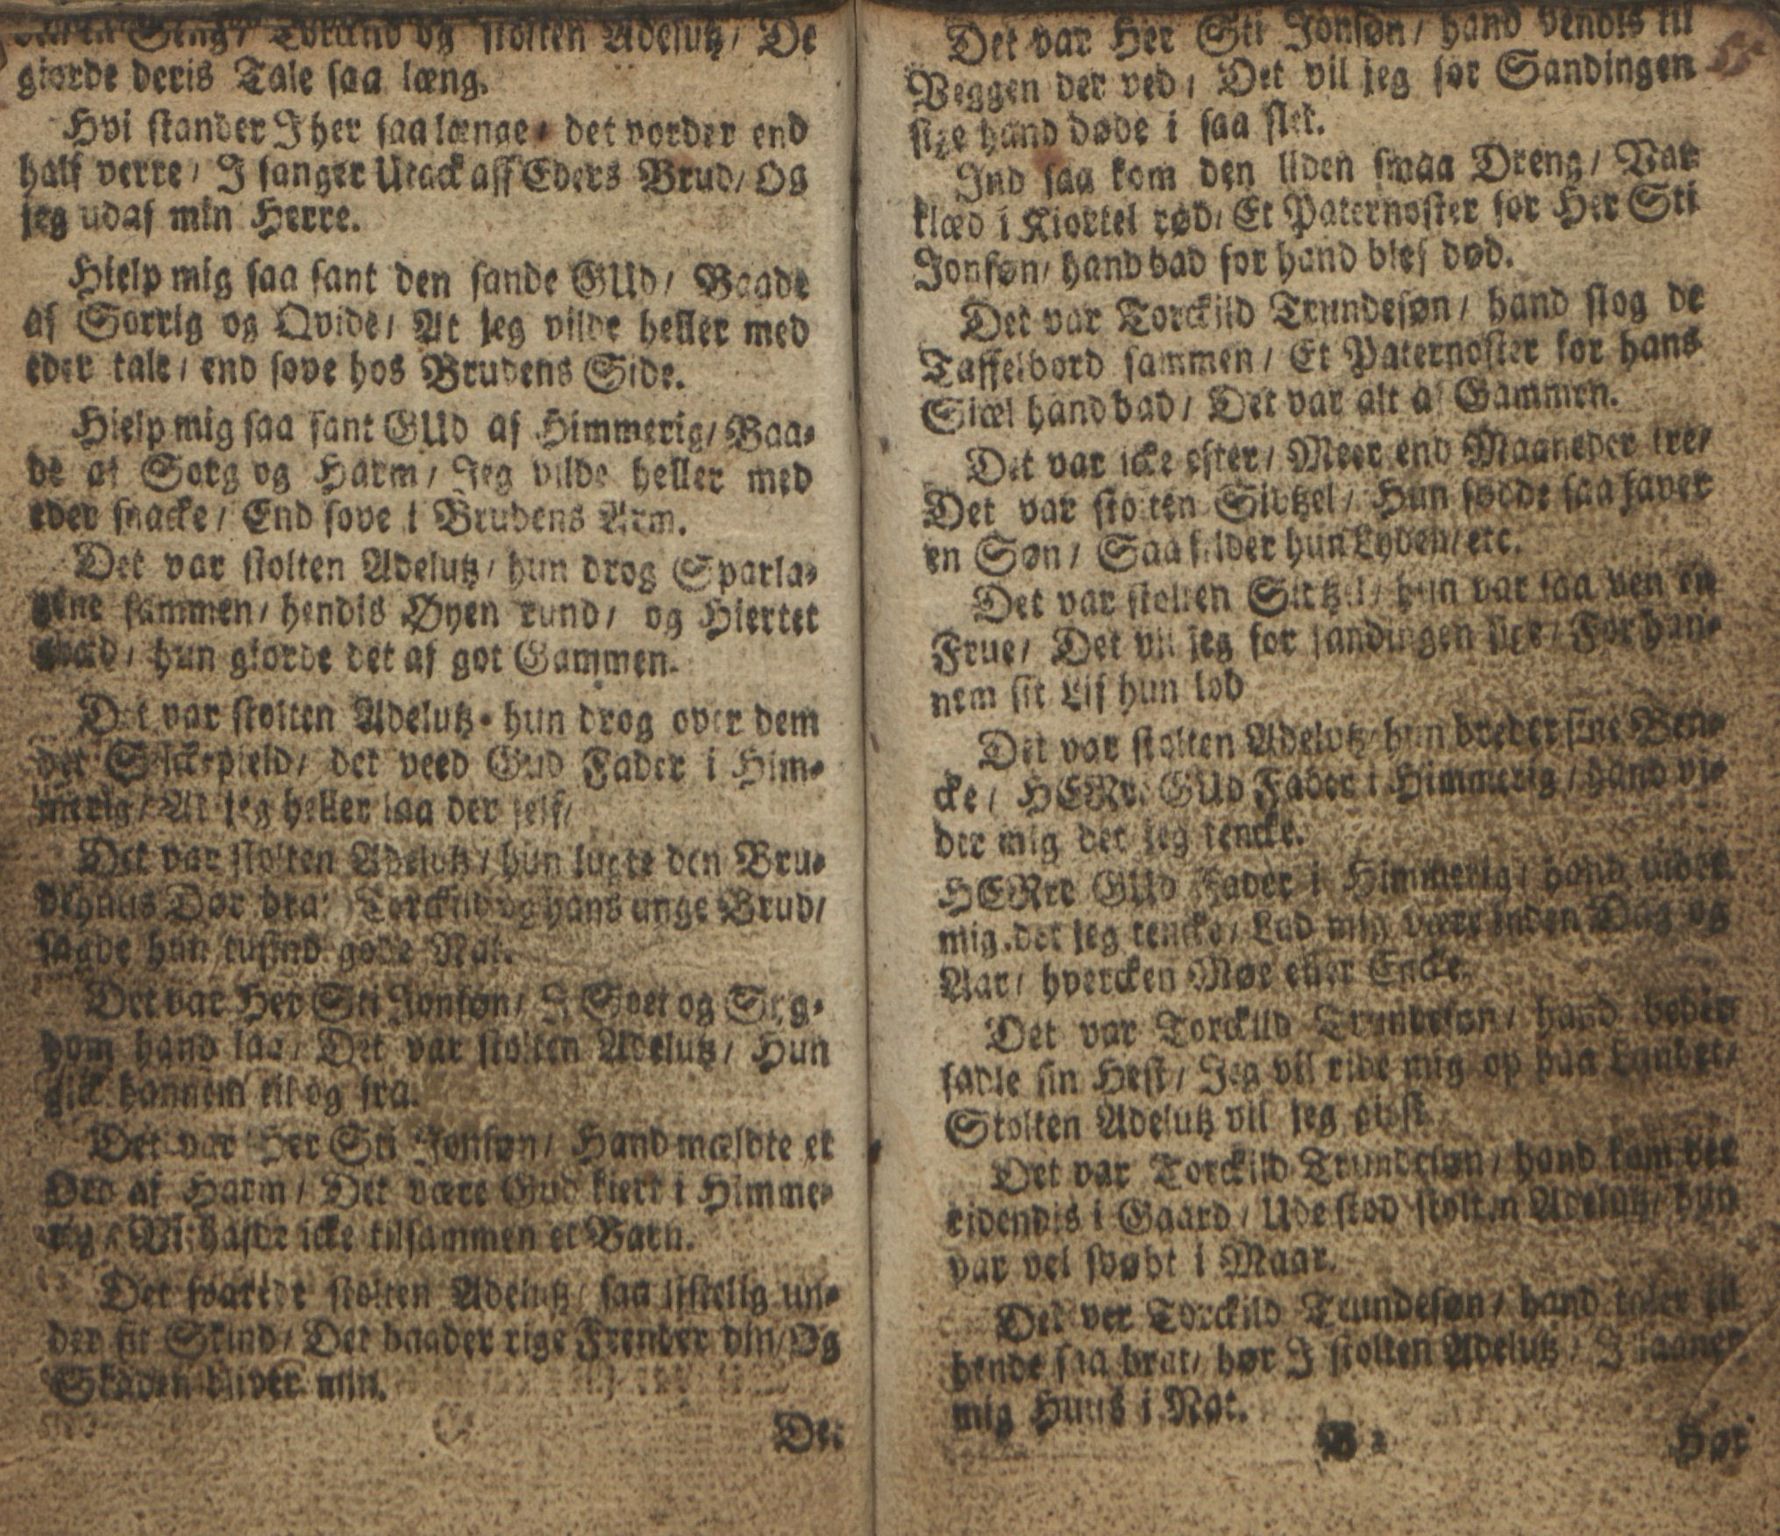 Seng / Torlind og stolten Adelutz / De
giorde deris Tale saa læng.
Hvi stander I her saa længe / det vorder end
half verre / I fanger Utack aff Eders Brud / Og
jeg udaf min Herre.
Hielp mig saa sant den sande GUd / Baade
af Sorrig og Qvide / At jeg vilde heller med
eder tale / end sove hos Brudens Side.
Hielp mig saa sant GUd af Himmerig / Baa-
de af Sorg og Harm / Jeg vilde heller med
eder snacke / End sove i Brudens Arm.
Det var stolten Adelutz / hun drog Sparla-
gene sammen / hendis Øyen rund / og Hiertet
hun giorde det af got Gammen.
Det var stolten Adelutz / hun drog over dem
det Silckepield / det veed Gud Fader i Him-
merig / At jeg heller laa der self /
Det var stolten Adelutz / hun lugte den Bru-
dehuus Dør bra: Torckild og hans unge Brud /
sagde hun tusind gode Nat.
Det var Her Sti Jonsøn / I Soet og Syg-
dom hand laa / Det var stolten Adelutz / Hun
gick hannem til og fra.
Det var Her Sti Jonsøn / Hand mældte et
Ord af Harm / Det være Gud kiert i Himme-
rig / Vi hafde icke tilsammen et Barn.
Det svarede stolten Adelutz / saa listelig un-
der sit Skind / Det baader rige Frender din / Og
Skaden bliver min.
Det
Det var Her Sti Jonsøn / hand vendis til
Veggen der ved / Det vil jeg for Sandingen
sige hand døde i saa sted.
Ind saa kom den liden smaa Dreng / Var
klæd i Kiortel rød / Et Paternoster for Her Sti
Jonsøn / hand bad for hand blef død.
Det var Torckild Trundesøn / hand slog de
Taffelbord sammen / Et Paternoster for hans
Siæl hand bad / Det var alt af Gammen.
Det var icke efter / Meer end Maaneder tre /
Det var stolten Sitzel / Hun fødde saa faver
en Søn / Saa hun Lyden / etc.
Det var stolten Sitzel / hun var saa ven en
Frue / Det vil jeg for sandingen sige / For han-
nem sit Lif hun lod
Det var stolten Adelutz hun breder sine Ben-
cke / HERre GUd Fader i Himmerig / hand vi-
der mig det jeg tencke.
HERre GUd Fader i Himmerig / hand vider
mig det jeg tencke / Lad mig være inden Dag og
Aar / hvercken Møe eller Encke.
Det var Torckild Trundesøn / hand beder
sadle sin Hest / Jeg vil ride mig op paa Landet /
Stolten Adelutz vil jeg giæst
Det var Torckild Trundesøn / hand kom der
ridendis i Gaard / Ude stod stolten Adelutz / hun
var vel svøbt i Maar.
Det ver Torckild Trundesøn / hand taler til
hende saa brat / hør I stolten Adelutz / I laaner
mig Huus i Nat.
B 2
Hør